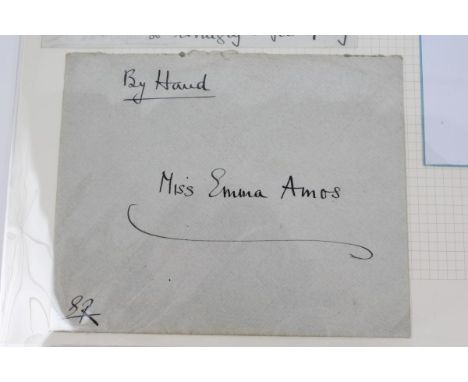 By Hand
Miss Emma Amos